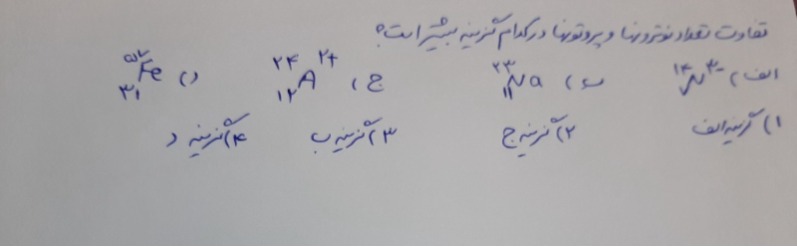 تفاوت تعداد نوترونها و پروتونها در کدام گزینه بیشتر است؟
الف) ¹⁴₇N³⁻ ب) ²³₁₁Na ج) ²⁴₁₂A²⁺ د) ⁵⁷₃₁Fe
۱) گزینه الف ۲) گزینه ج ۳) گزینه ب ۴) گزینه د